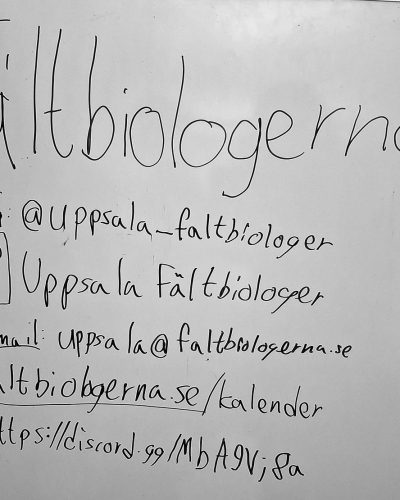 ältbiologerna
@uppsala_faltbiologer
Uppsala Fältbiologer
mail: uppsala@faltbiologerna.se
altbiologerna.se/kalender
ttps://discord.gg/MbA9Vj8a